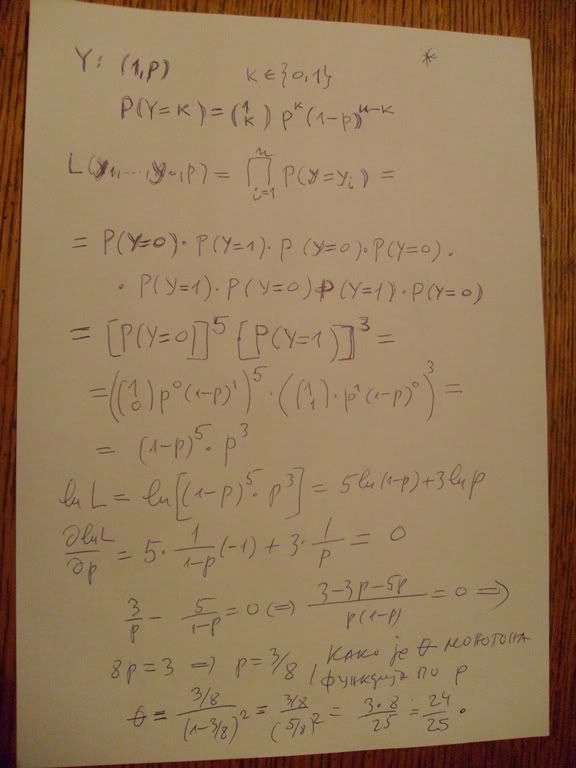 Y: (1,p) k∈{0,1} *
P(Y=k) = (1 k) p^k (1-p)^{n-k}
L(y₁,...,yₙ,p) = ∏_{i=1}^{n} P(y=yᵢ) =
= P(Y=0)·P(Y=1)·P(Y=0)·P(Y=0)·
·P(Y=1)·P(Y=0) P(Y=1)·P(Y=0)
= [P(Y=0)]^5 · [P(Y=1)]^3 =
= ((1 0) p^0 (1-p)^1)^5 · ((1 1)·p^1 (1-p)^0)^3 =
= (1-p)^5 · p^3
ln L = ln[(1-p)^5 · p^3] = 5ln(1-p)+3lnp
∂lnL/∂p = 5· 1/(1-p) (-1) + 3· 1/p = 0
3/p - 5/(1-p) = 0 (=) (3-3p-5p)/(p(1-p)) = 0 =>
8p=3 => p=3/8 / како је θ монотона
функција по p
θ = (3/8)/(1-3/8)^2 = (3/8)/(5/8)^2 = (3·8)/25 = 24/25.